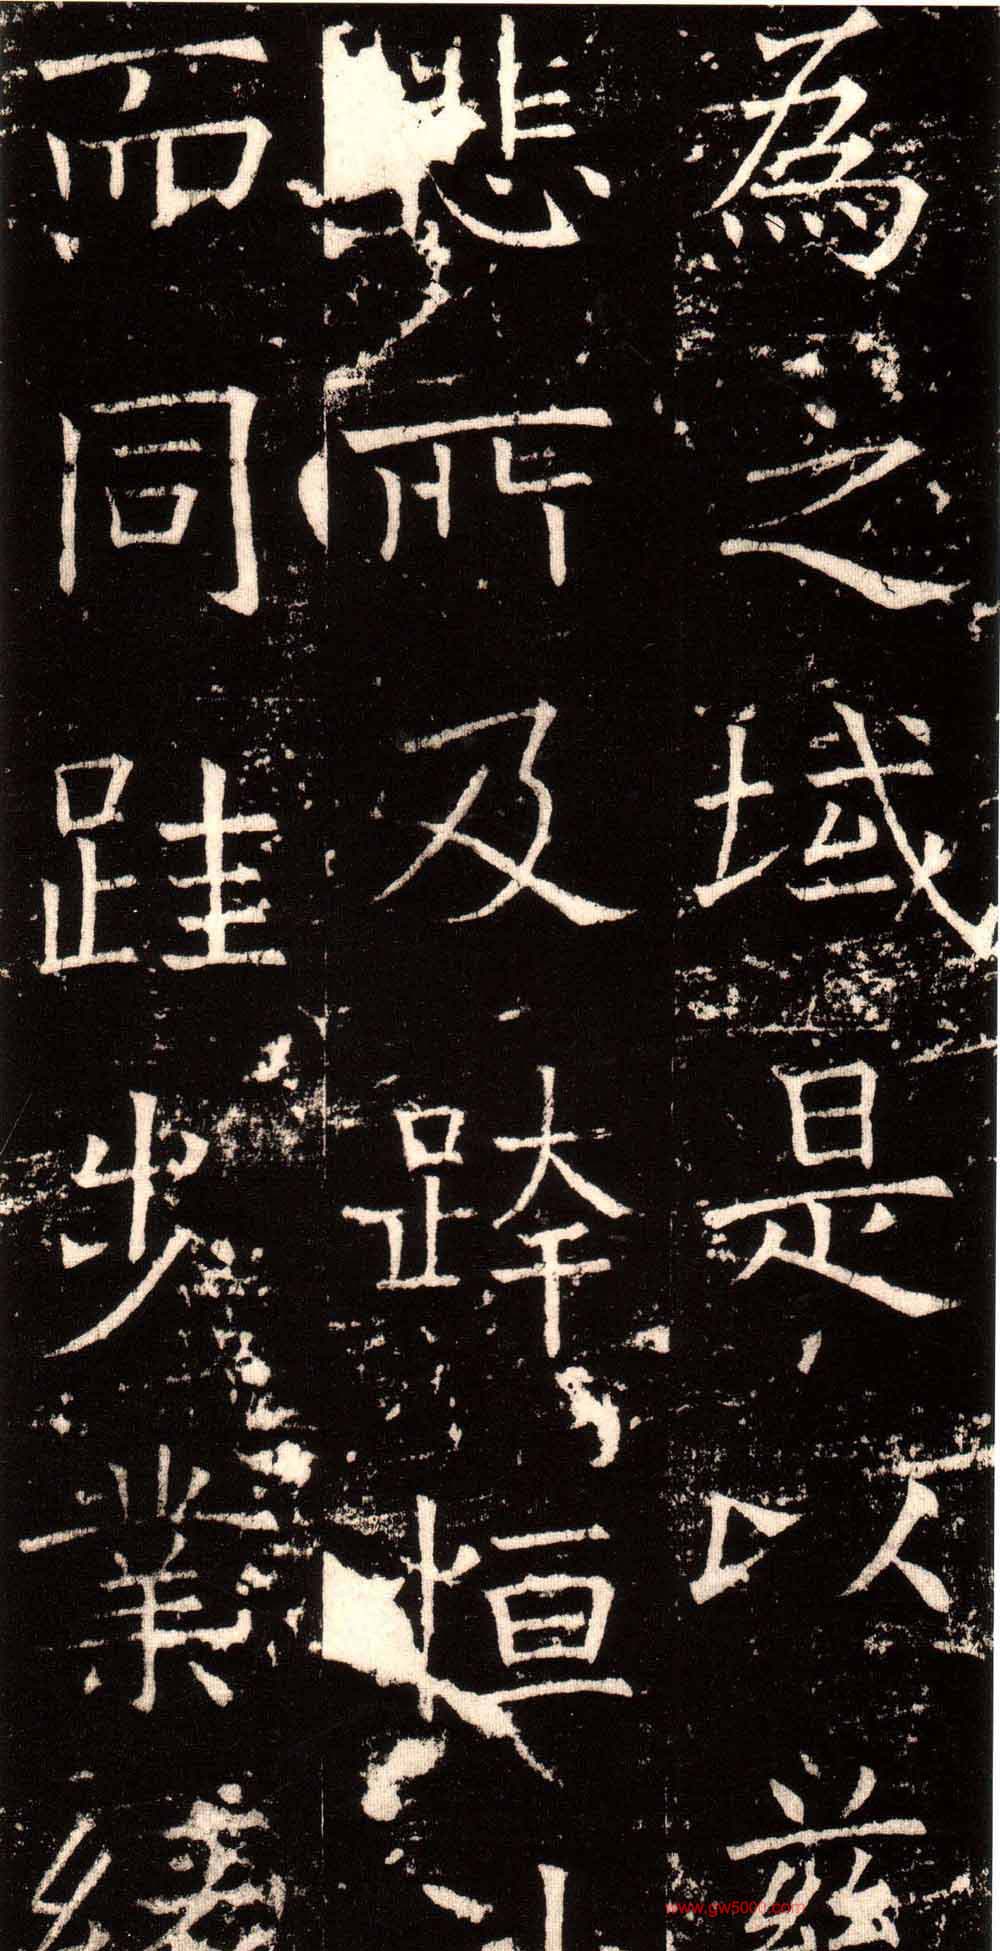 為之域是以慈
悲所及跨恒
而同跬步業
www.gw5000.com